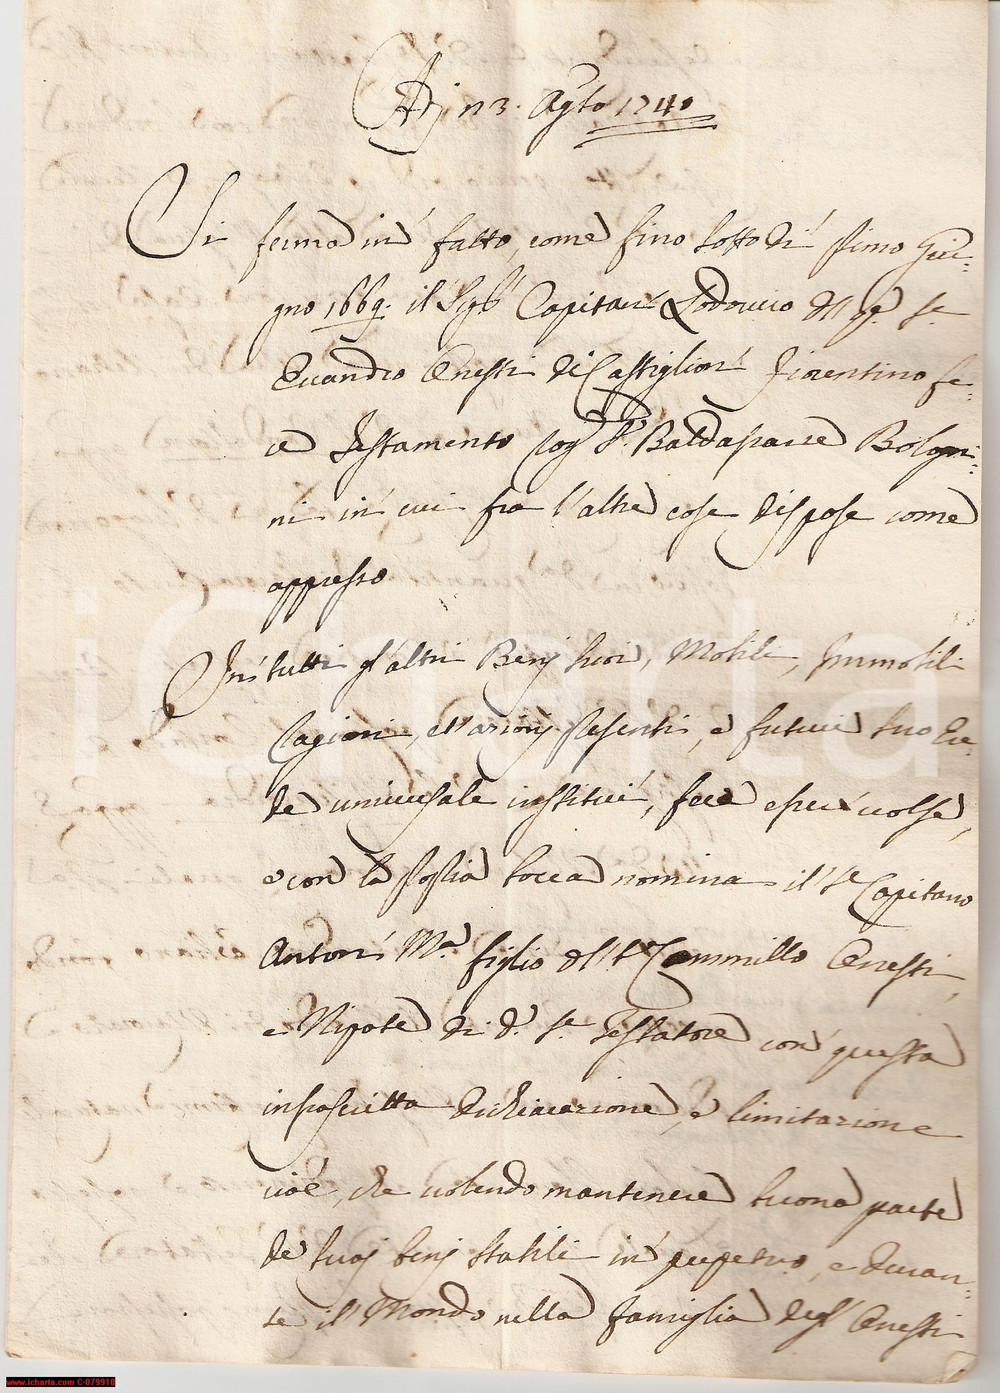 Adj 23. Agto 1740
Si ferma in fatto, come fino sotto dì primo Giu=
gno 1669. il Sigr Capitan Lodovico del q. Sr
Evandro Onesti di Castiglion Fiorentino fe=
ce Testamento rog. Sr Baldassarre Bologni=
ni in cui fra l'altre cose dispose come
appresso
In tutti gl'altri Benj suoi, Mobili, Immobili
Ragioni, et azionj presenti, e future suo Ere=
de universale instituì, fece esser volse,
e con la propria bocca nomina il Sr Capitano
Anton Ma. figlio del Sr Cammillo Onesti,
e Nipote di d. Sr Testatore con questa
infrascritta dichiarazione, e limitazione
cioè, che volendo mantenere buona parte
de suoj benj stabili in perpetuo, e duran=
te il Mondo nella famiglia degl'Onesti
iCharta
www.icharta.com C-079910